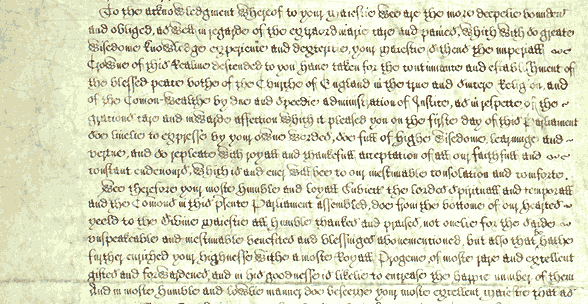 To the acknowledgment whereof to your Maiestie wee are the more deepelie bounden
and obliged, as well in regarde of the extraordinarie care and paines, which with so greate
wisedome knowledge experience and dexteritie, your Maiestie sithens the imperiall
Crowne of this Realme descended to you, have taken for the continuance and establishment of
the blessed peace bothe of the Churche of England in the true and sincere Religion, and
of the Comon-Wealthe by due and speedie administration of Justice, as in respecte of the
gracious care and inwarde affection which it pleased you on the firste day of this Parliament
soe livelie to expresse by your owne wordes, soe full of highe wisedome, learninge and
vertue, and so repleate with royall and thankefull acceptation of all our faithfull and
constant endevours, which is and ever wilbee to our inestimable consolation and comforte.
Wee therefore your moste humble and loyall Subiects the lordes spirituall and temporall
and the Comons in this psente Parliament assembled, doe from the bottome of our hartes
yeeld to the Divine Maiestie all humble thankes and praises, not onelie for the saide
unspeakeable and inestimable benefites and blessinges abovementioned, but also that hee hathe
further enriched your highnesse withe a moste Royall Progenie of moste rare and excellent
giftes and forwardenes, and in his goodnesse is likelie to encrease the happie number of them
And in moste humble and lowlie manner doe beseeche your moste excellent Maiestie that as